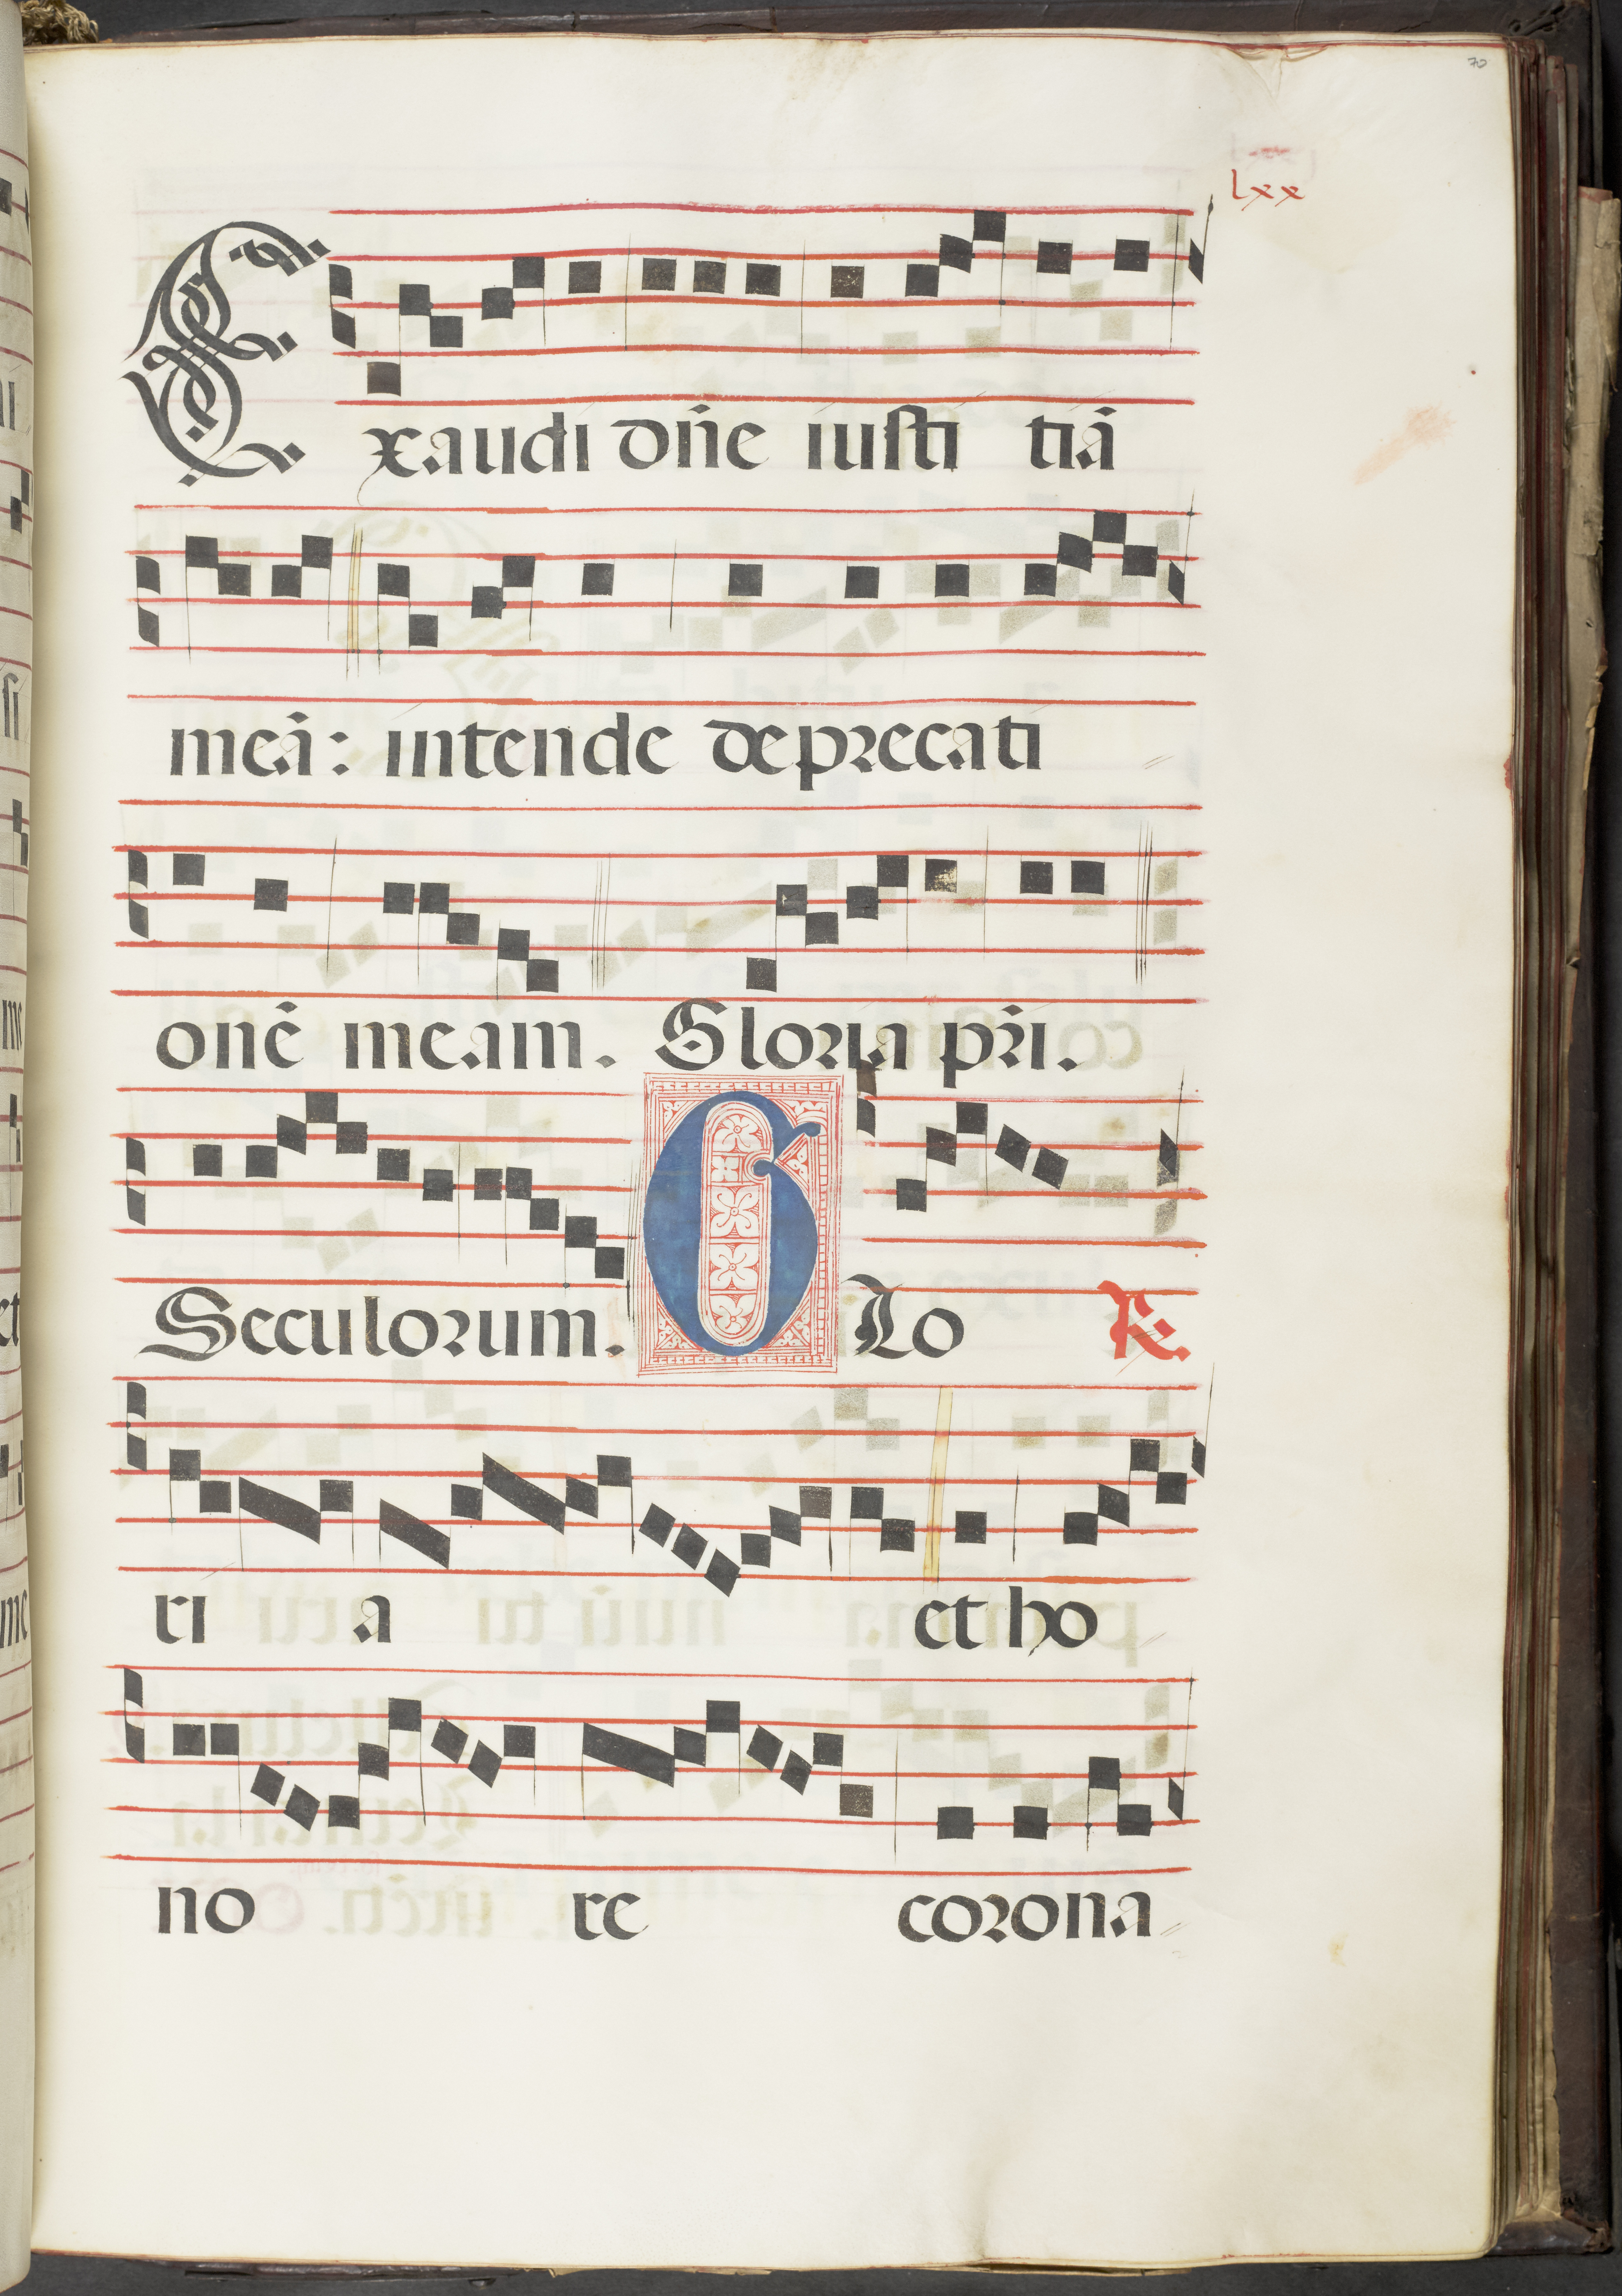 70
lxx
Exaudi dñe iusti tiā
meā: intende deprecati
onē meam. Gloria pr̄i.
Seculorum. GLo R.
ri a et ho
no re corona